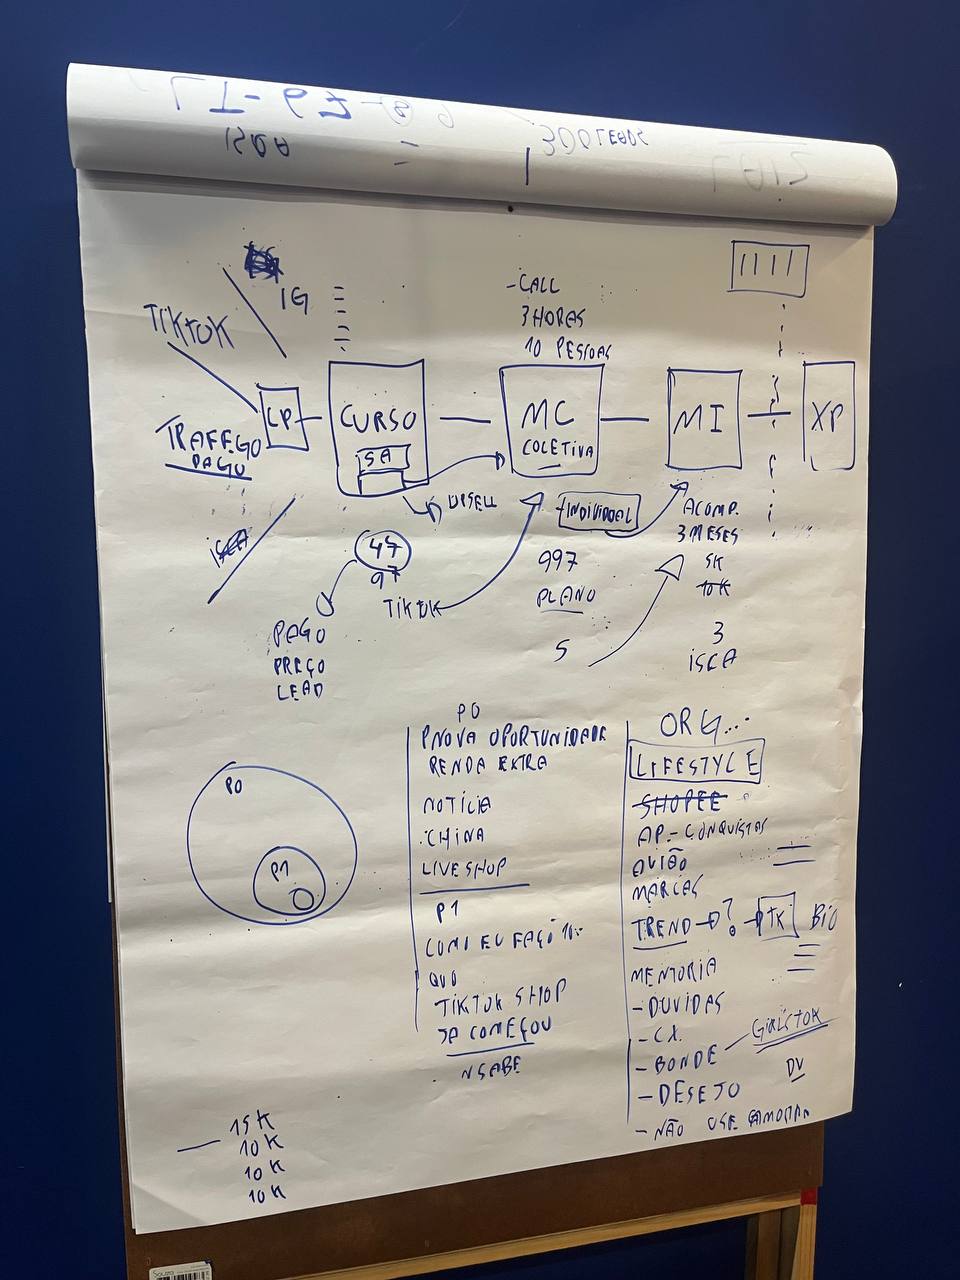 ISCA
300 LEADS
IG
TIKTOK
- CALL
3 HORAS
10 PESSOAS
CP
CURSO
SA
MC
COLETIVA
MI
XP
TRAFEGO
PAGO
ISCA
UPSELL
+INDIVIDUAL
ACOMP.
3 MESES
5K
10K
47
97
TIKTOK
997
PLANO
5
3
ISCA
PAGO
PREÇO
LEAD
P0
P1
P0
PROVA OPORTUNIDADE
RENDA EXTRA
NOTÍCIA
CHINA
LIVESHOP
P1
COMO EU FAÇO
QUO
TIKTOK SHOP
JA COMEÇOU
N SABE
ORG...
LIFESTYLE
SHOPEE
AP - CONQUISTAS
AVIÃO
MARCAS
TREND → ? → TK BIO
MENTORIA
- DUVIDAS
- CX.
- BONDE
GIRLSTOK
- DESEJO
DV
- NÃO USE
15K
10K
10K
10K